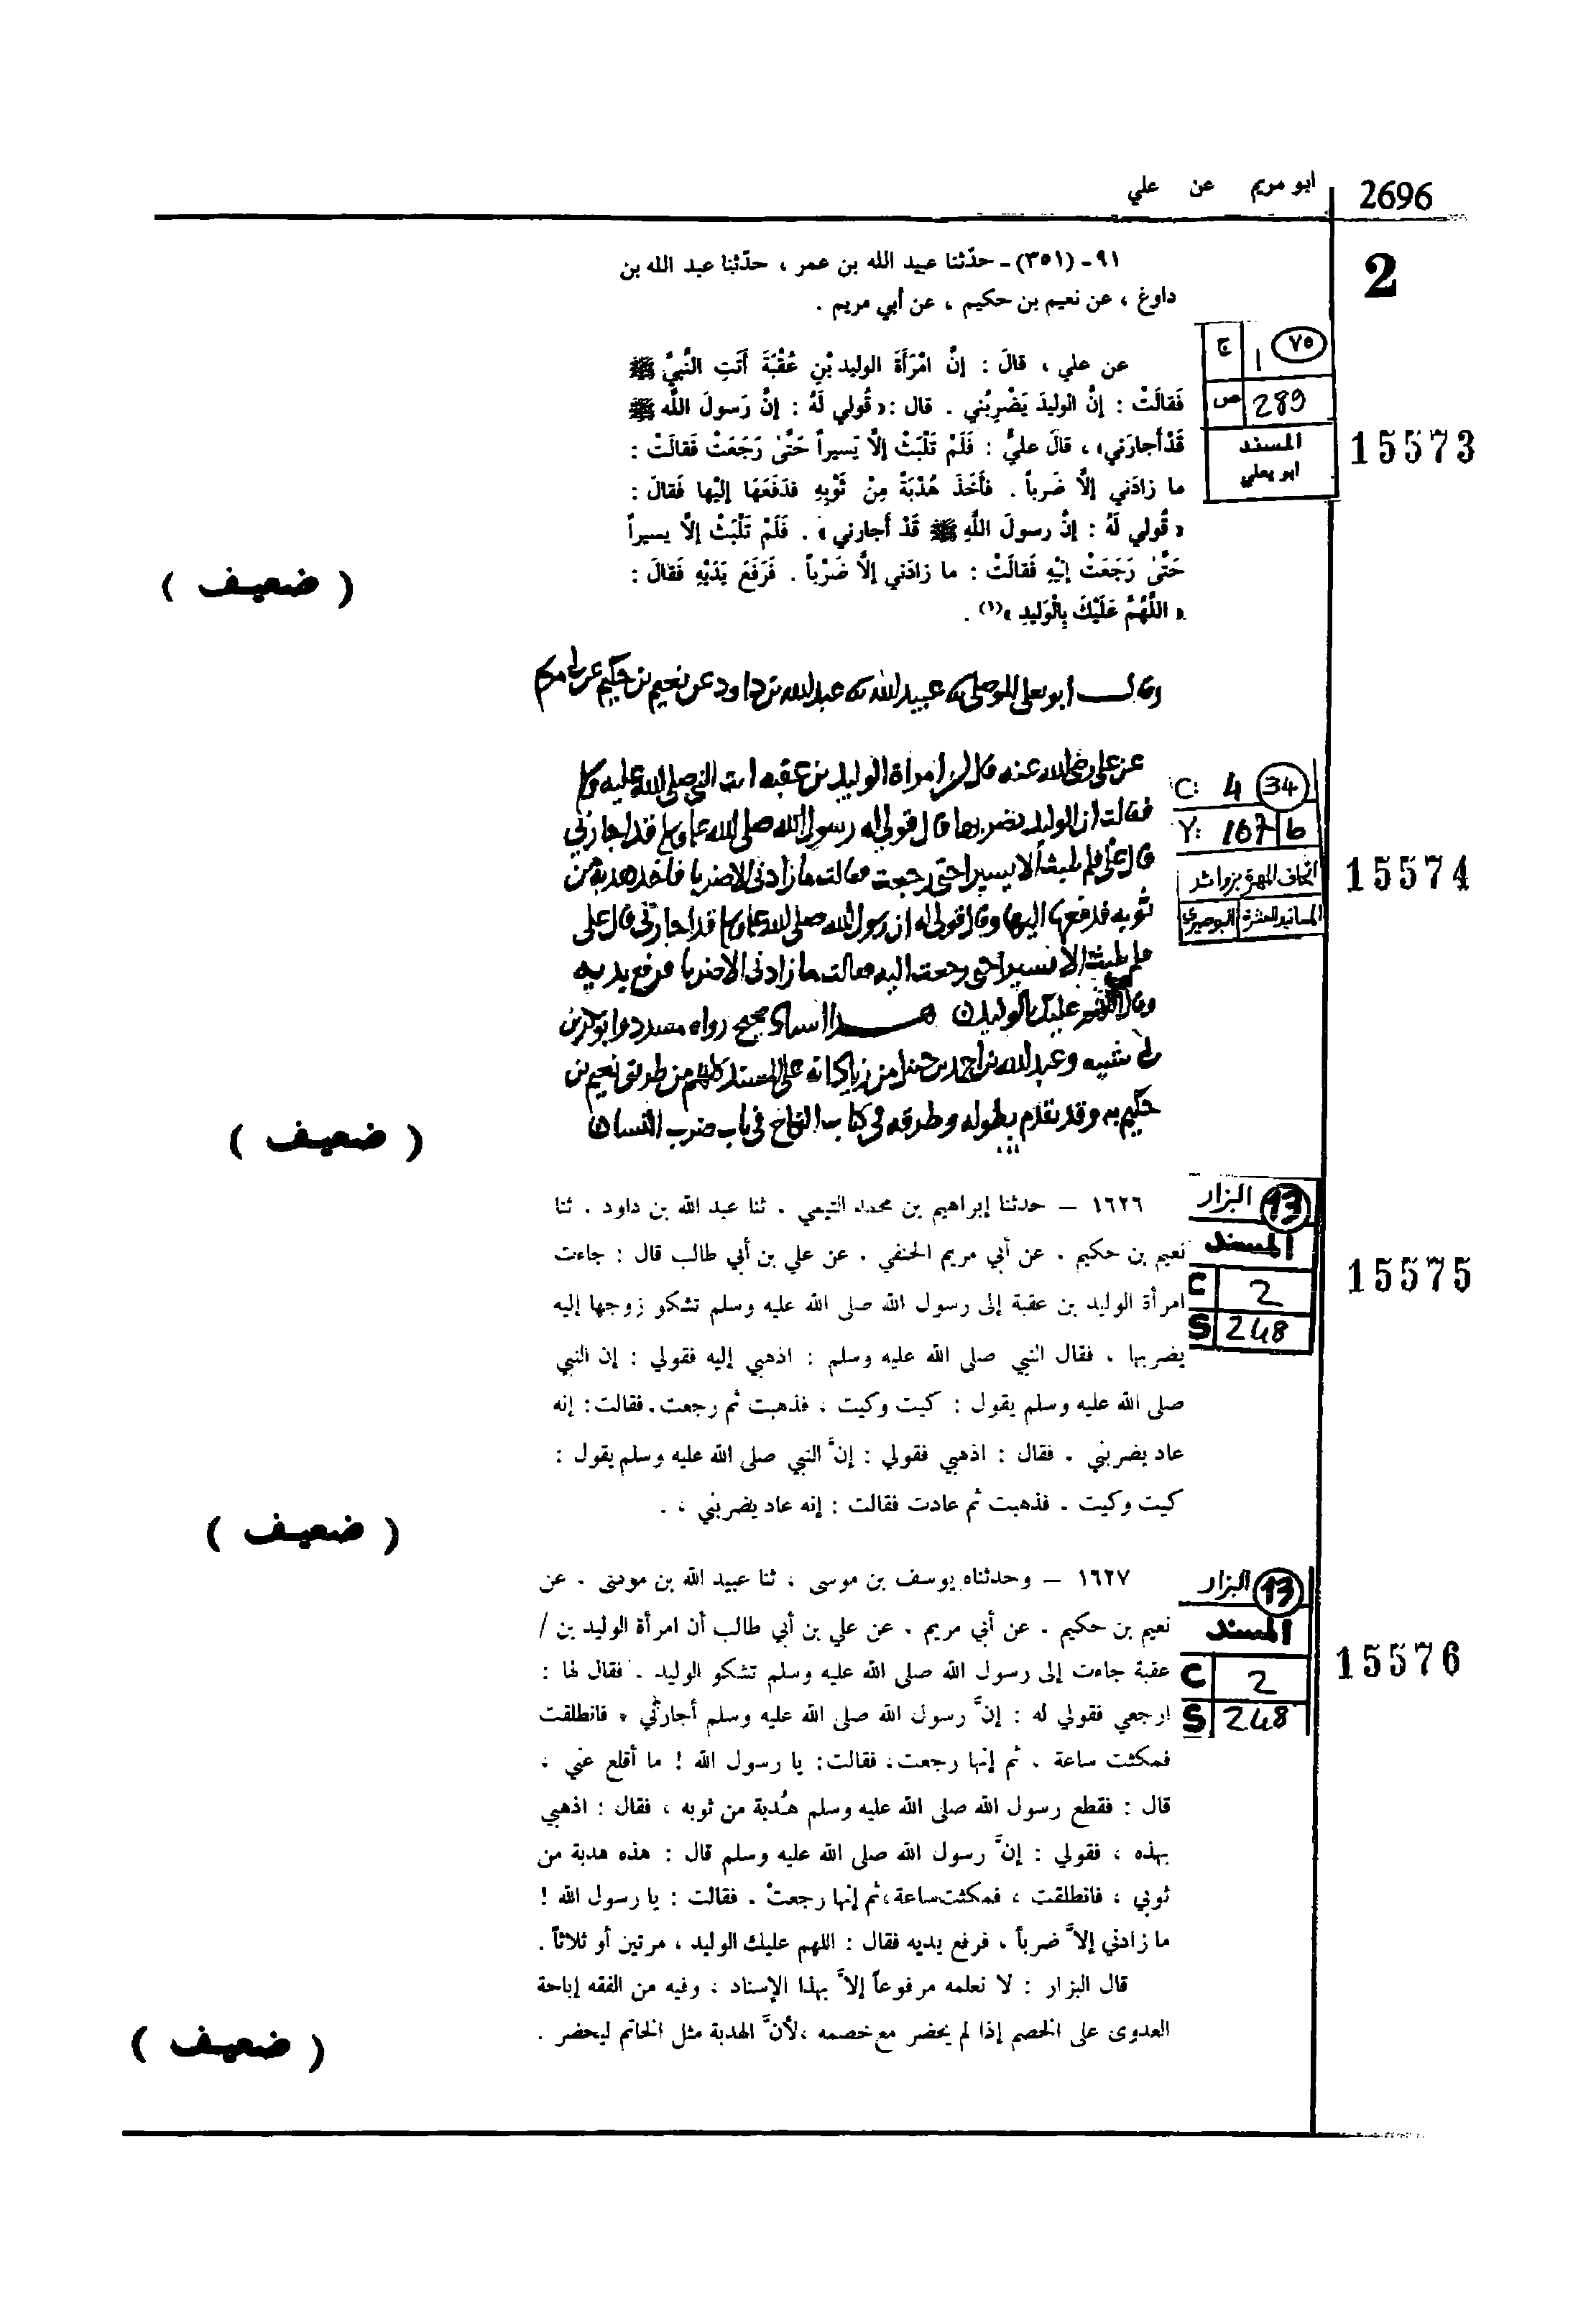 2696
ابو مريم عن علي
2
٩١- (٣٥١)- حدّثنا عبيد الله بن عمر ، حدّثنا عبد الله بن
داوغ ، عن نعيم بن حكيم ، عن أبي مريم .
٧٥ ١ ج
289 ص
المسند
ابو يعلى
15573
عن علي ، قالَ : إنَّ امْرَأَةَ الوليد بْنِ عُقْبَةَ أَتَتِ النَّبِيَّ ﷺ
فَقالَتْ : إنَّ الوليدَ يَضْرِبُني . قال : « قُولي لَهُ : إنَّ رَسولَ اللَّه ﷺ
قَدْ أَجارَني» ، قالَ عليٌّ : فَلَمْ تَلْبَثْ إلَّا يَسيراً حَتَّىٰ رَجَعَتْ فَقالَتْ :
ما زادَني إلَّا ضَرباً . فأَخَذَ هُدْبَةً مِنْ ثَوْبِهِ فدَفَعَهَا إليْها فَقالَ :
« قُولي لَهُ : إنَّ رسولَ اللَّهِ ﷺ قَدْ أجارني » . فَلَمْ تَلْبَثْ إلَّا يسيراً
حَتَّىٰ رَجَعَتْ إليْهِ فَقالَتْ : ما زادَني إلَّا ضَرْباً . فَرَفَعَ يَدَيْهِ فَقَالَ :
« اللَّهُمَّ عَلَيْكَ بِالْوَليدِ »(١) .
( ضعيف )
وقال أبو يعلى الموصلي ثنا عبيد الله ثنا عبد الله بن داود عن نعيم بن حكيم عن ابي مريم
C: 4 34
Y: 167 b
اتحاف المهرة بزوائد
المسانيد العشرة البوصيري
15574
عن علي رضي الله عنه قال ان امراة الوليد بن عقبة اتت النبي صلى الله عليه وسلم
فقالت ان الوليد يضربها قال قولي له رسول الله صلى الله عليه وسلم قد اجارني
قال علي فلم يلبث الا يسيرا حتى رجعت فقالت ما زادني الا ضربا فاخذ هدبة من
ثوبه فدفعها اليها وقال قولي له ان رسول الله صلى الله عليه وسلم قد اجارني قال علي
فلم يلبث الا يسيرا حتى رجعت اليه فقالت ما زادني الا ضربا فرفع يديه
وقال اللهم عليك بالوليد هذا اسناد صحيح رواه مسدد وابو بكر بن
ابي شيبه وعبد الله بن احمد بن حنبل من زياداته على المسند كلهم من طريق نعيم بن
حكيم به وقد تقدم بطوله وطرقه في كتاب النكاح في باب ضرب النساء
( ضعيف )
13 البزار
المسند
C 2
S 248
15575
١٦٢٦ – حدثنا إبراهيم بن محمد التيمي ، ثنا عبد الله بن داود ، ثنا
نعيم بن حكيم ، عن أبي مريم الحنفي ، عن علي بن أبي طالب قال : جاءت
امرأة الوليد بن عقبة إلى رسول الله صلى الله عليه وسلم تشكو زوجها إليه
يضربها ، فقال النبي صلى الله عليه وسلم : اذهبي إليه فقولي : إن النبي
صلى الله عليه وسلم يقول : كيت وكيت ، فذهبت ثم رجعت، فقالت: إنه
عاد يضربني ، فقال : اذهبي فقولي : إنَّ النبي صلى الله عليه وسلم يقول :
كيت وكيت ، فذهبت ثم عادت فقالت : إنه عاد يضربني ، .
( ضعيف )
13 البزار
المسند
C 2
S 248
15576
١٦٢٧ – وحدثناه يوسف بن موسى ، ثنا عبيد الله بن موسى ، عن
نعيم بن حكيم ، عن أبي مريم ، عن علي بن أبي طالب أن امرأة الوليد بن /
عقبة جاءت إلى رسول الله صلى الله عليه وسلم تشكو الوليد ، فقال لها :
ارجعي فقولي له : إنَّ رسول الله صلى الله عليه وسلم أجارني ، فانطلقت
فمكثت ساعة ، ثم إنها رجعت، فقالت: يا رسول الله ! ما أقلع عني ،
قال : فقطع رسول الله صلى الله عليه وسلم هُدبة من ثوبه ، فقال : اذهبي
بهذه ، فقولي : إنَّ رسول الله صلى الله عليه وسلم قال : هذه هدبة من
ثوبي ، فانطلقت ، فمكثت ساعة، ثم إنها رجعتْ ، فقالت : يا رسول الله !
ما زادني إلاَّ ضرباً ، فرفع يديه فقال : اللهم عليك الوليد ، مرتين أو ثلاثاً .
قال البزار : لا نعلمه مرفوعاً إلاَّ بهذا الإسناد ، وفيه من الفقه إباحة
العدوى على الخصم إذا لم يحضر مع خصمه ، لأنَّ الهدبة مثل الخاتم ليحضر .
( ضعيف )